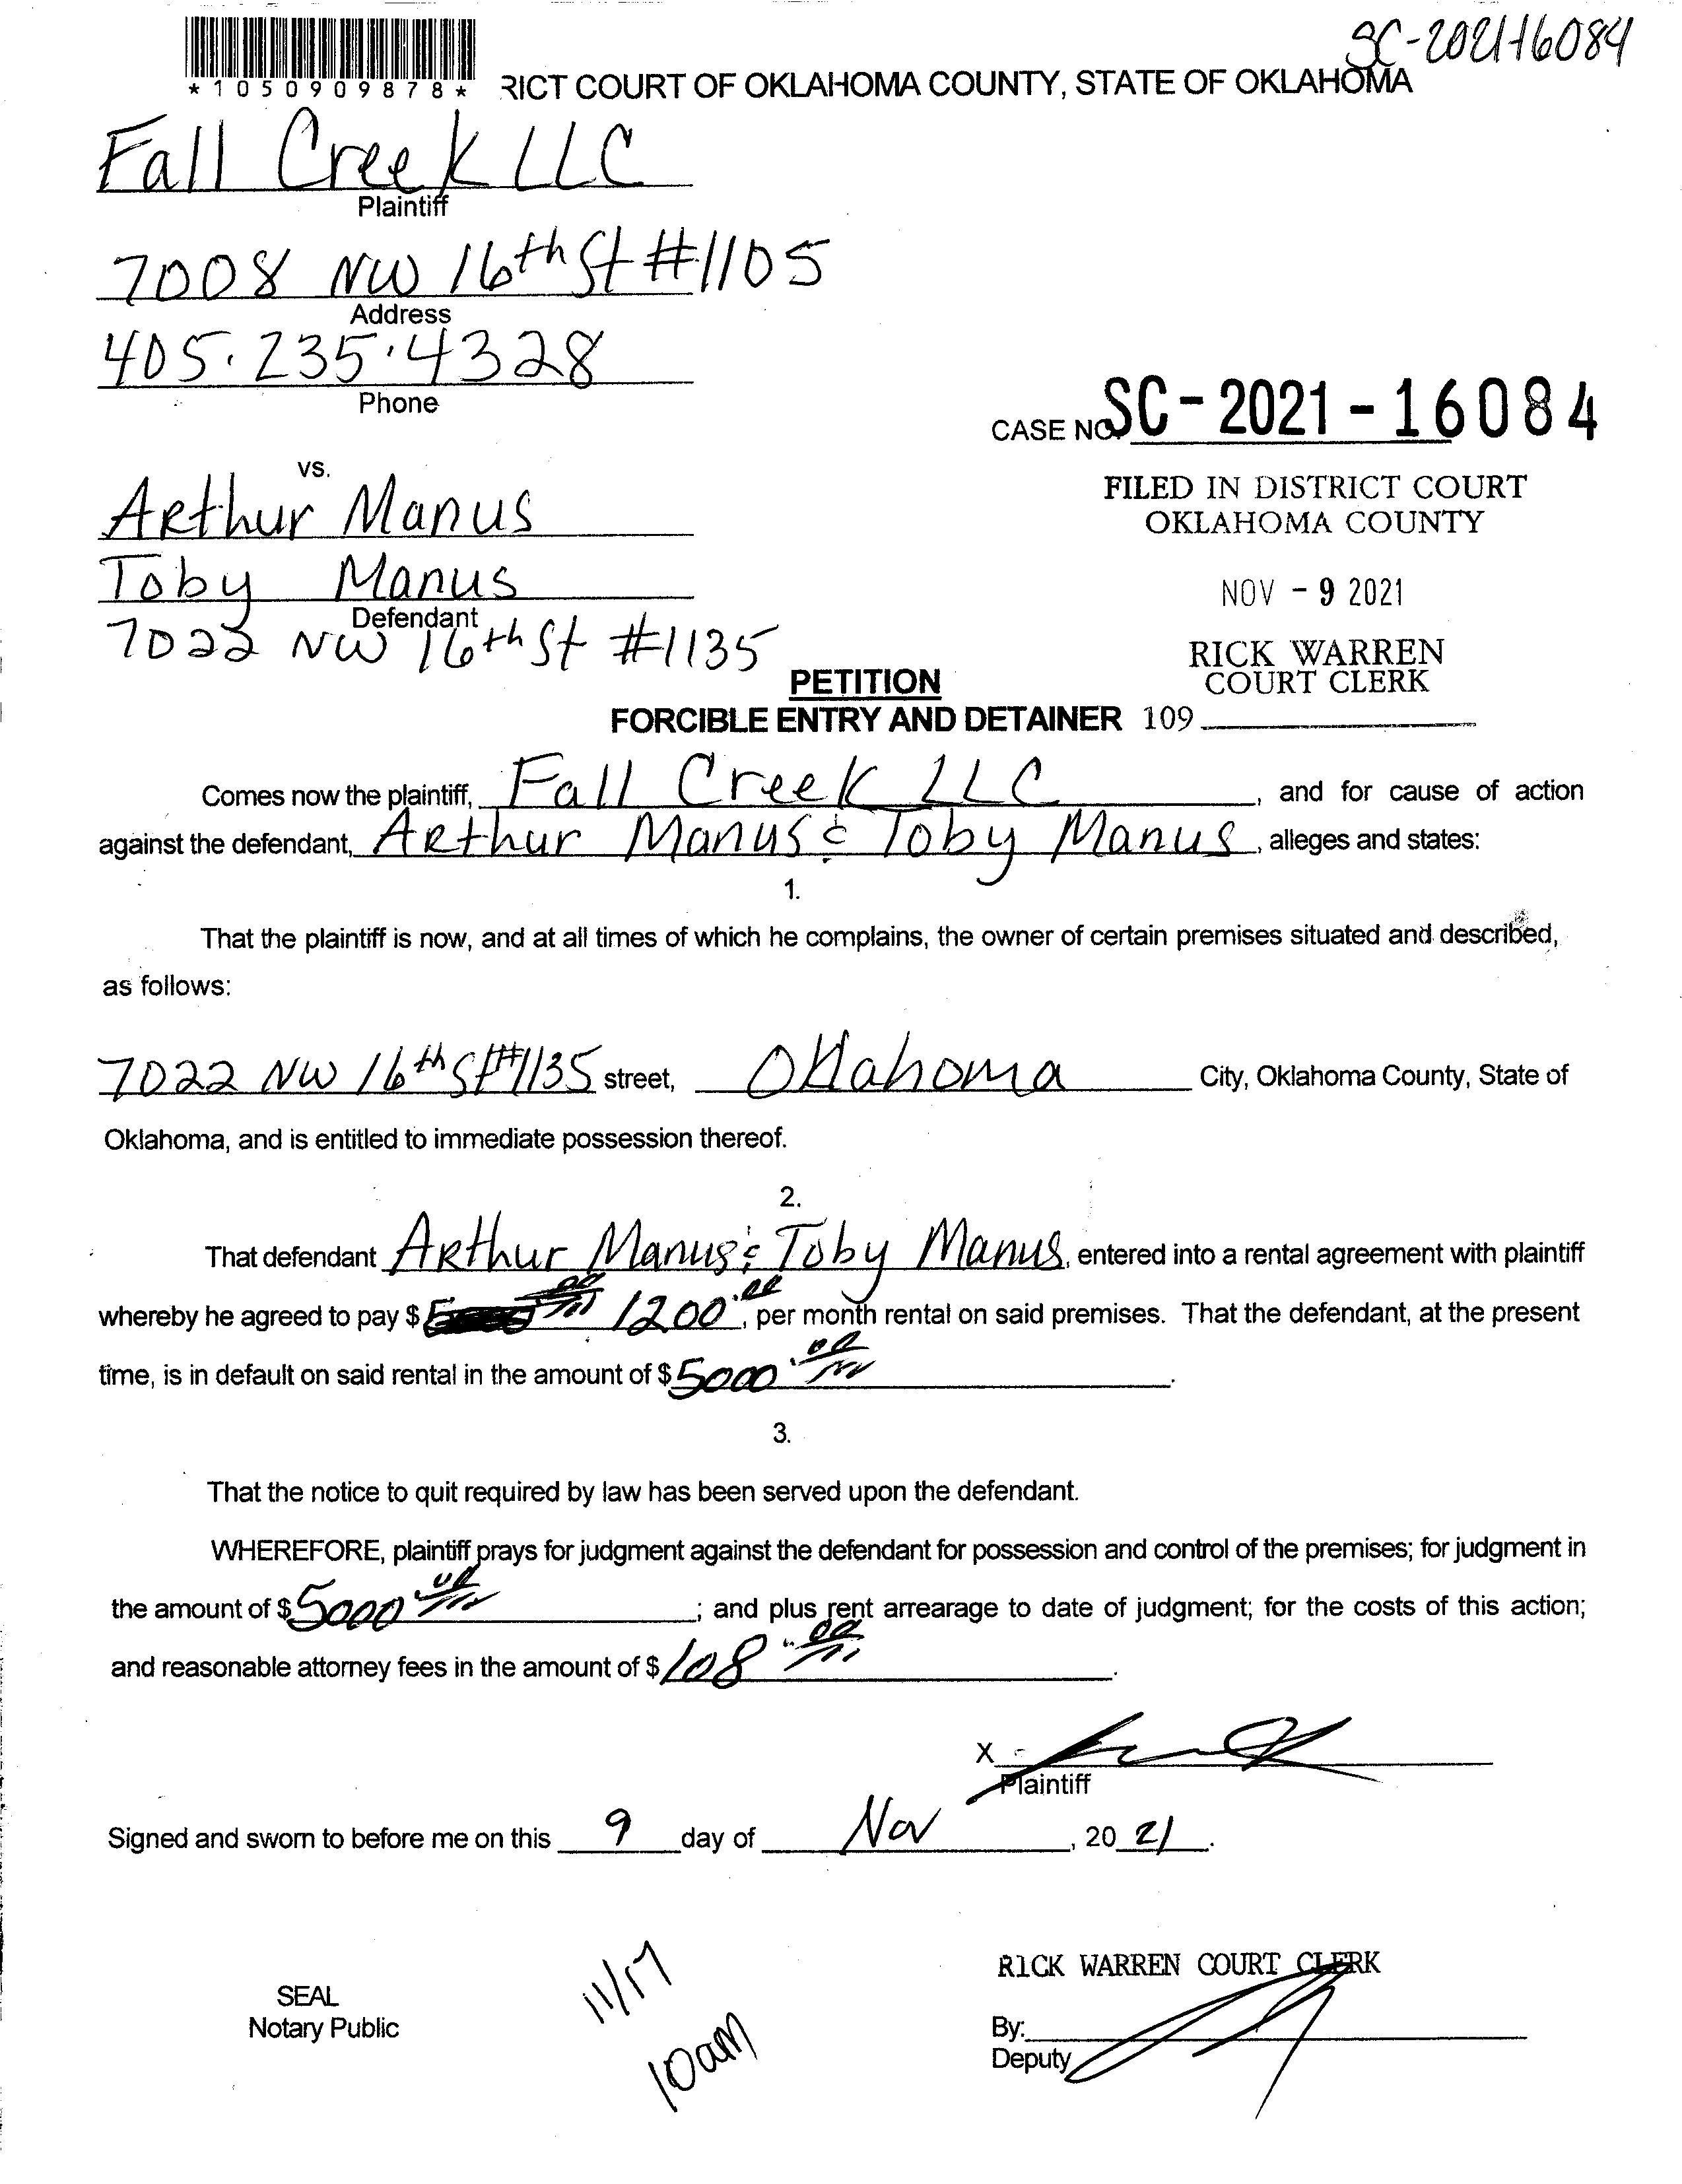 SC-2021-16084
*1050909878* RICT COURT OF OKLAHOMA COUNTY, STATE OF OKLAHOMA
Fall Creek LLC
Plaintiff
7008 NW 16th St #1105
Address
405.235.4328
Phone
CASE NO. SC-2021-16084
vs.
Arthur Manus
Toby Manus
Defendant
7022 NW 16th St #1135
FILED IN DISTRICT COURT
OKLAHOMA COUNTY
NOV - 9 2021
RICK WARREN
COURT CLERK
109
PETITION
FORCIBLE ENTRY AND DETAINER
Comes now the plaintiff, Fall Creek LLC, and for cause of action
against the defendant, Arthur Manus & Toby Manus, alleges and states:
1.
That the plaintiff is now, and at all times of which he complains, the owner of certain premises situated and described,
as follows:
7022 NW 16th St #1135 street, Oklahoma City, Oklahoma County, State of
Oklahoma, and is entitled to immediate possession thereof.
2.
That defendant Arthur Manus & Toby Manus, entered into a rental agreement with plaintiff
whereby he agreed to pay $ 1200.00, per month rental on said premises. That the defendant, at the present
time, is in default on said rental in the amount of $5000.00.
3.
That the notice to quit required by law has been served upon the defendant.
WHEREFORE, plaintiff prays for judgment against the defendant for possession and control of the premises; for judgment in
the amount of $5000.00; and plus rent arrearage to date of judgment; for the costs of this action;
and reasonable attorney fees in the amount of $108.00.
X
Plaintiff
Signed and sworn to before me on this 9 day of Nov, 20 21.
SEAL
Notary Public
11/17
10am
RICK WARREN COURT CLERK
By:
Deputy